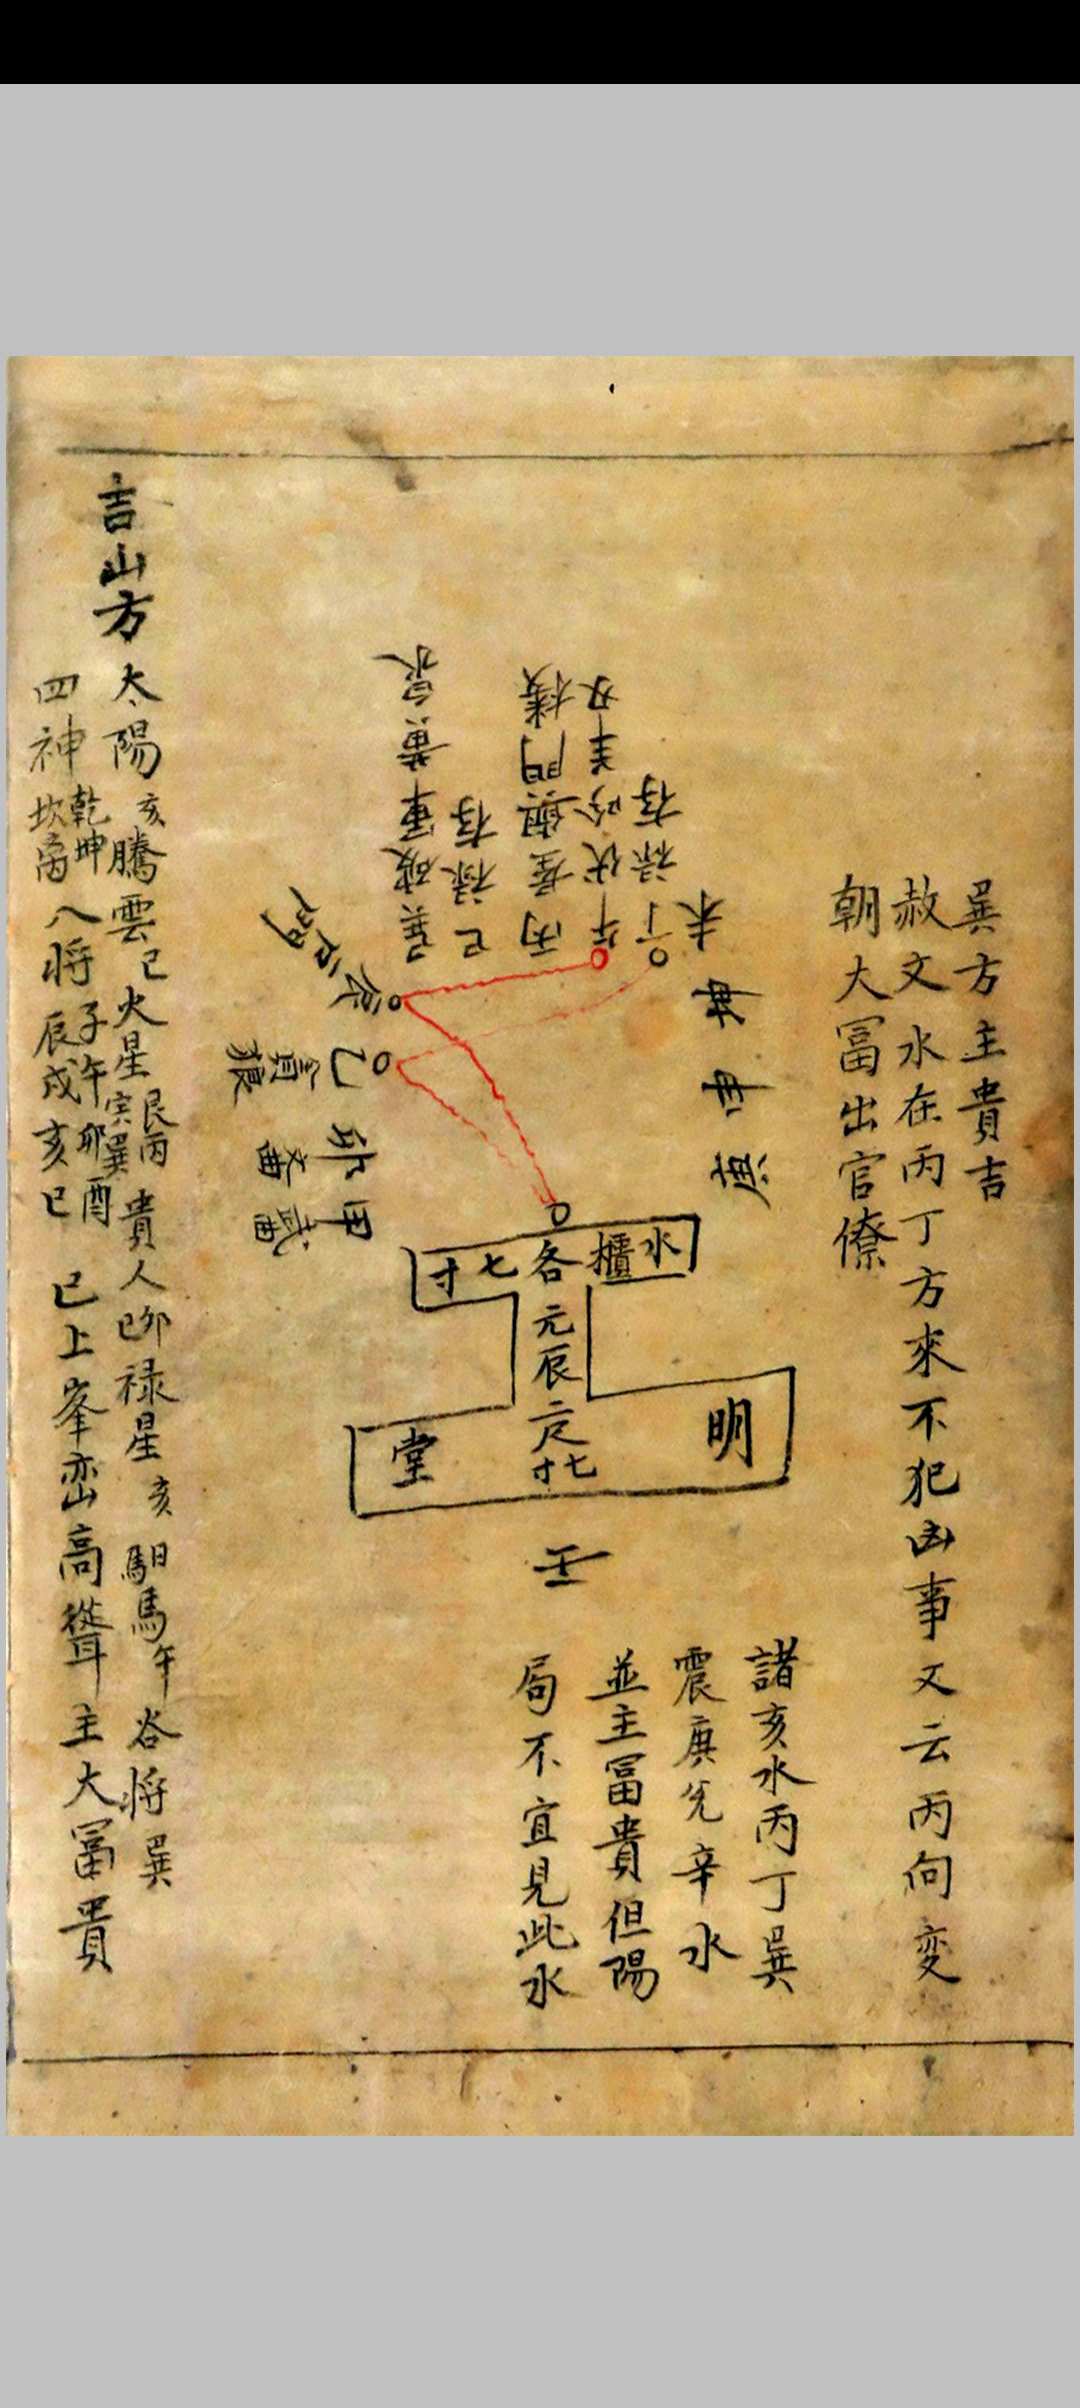 巽方主貴吉
赦文水在丙丁方來不犯凶事又云丙向変
朝大冨出官僚
諸亥水丙丁巽
震庚兊辛水
並主冨貴但陽
局不宜見此水
未
丁禄存
午伏吟羊刃
丙
巳禄存
巽破軍黄泉
辰
乙貪狼
卯文曲
甲武曲
申
水櫃各七寸
元辰二尺七寸
明堂
壬
吉山方
太陽亥騰雲巳火星艮丙寅巽貴人卯巳禄星亥馹馬午谷将巽
四神乾坤坎离八将子午卯酉辰戌亥巳已上峯巒高聳主大冨貴